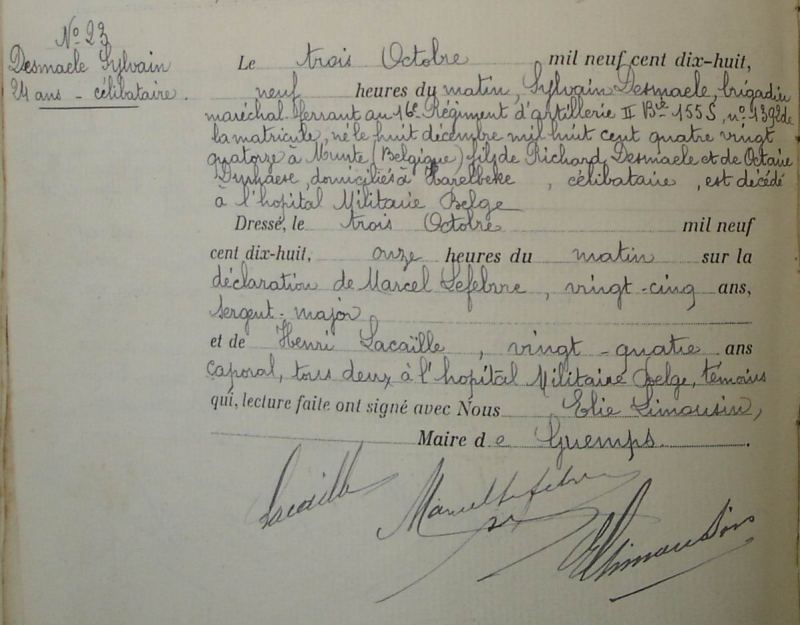 N° 23
Desmaele Sylvain
24 ans - célibataire.
Le trois Octobre mil neuf cent dix-huit,
neuf heures du matin, Sylvain Desmaele, brigadier
maréchal ferrant au 16e Régiment d'artillerie II Bie 155 S, n° 1392 de
la matricule, né le huit décembre mil huit cent quatre vingt
quatorze à Munte (Belgique) fils de Richard Desmaele et de Octavie
domiciliés à Harelbeke, célibataire, est décédé
à l'hopital Militaire Belge
Dressé, le trois Octobre mil neuf
cent dix-huit, onze heures du matin sur la
déclaration de Marcel Lefebvre, vingt-cinq ans,
sergent-major
et de Henri Lacaille, vingt-quatre ans
caporal, tous deux à l'hopital Militaire Belge, témoins
qui, lecture faite ont signé avec Nous Elie Limousin,
Maire de Guemps.
Lacaille Marcel Lefebvre
E Limousin